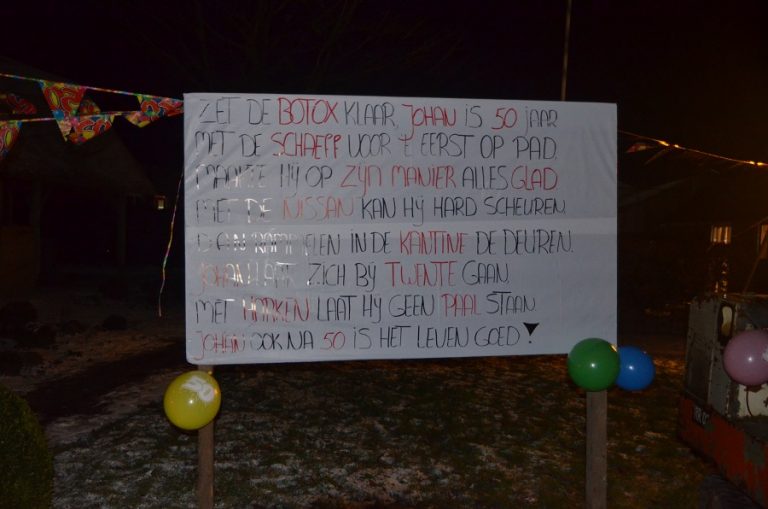 ZET DE BOTOX KLAAR, JOHAN IS 50 JAAR
MET DE SCHAEFF VOOR 'T EERST OP PAD.
MAAKTE HIJ OP ZIJN MANIER ALLES GLAD.
MET DE NISSAN KAN HIJ HARD SCHEUREN.
DAN RAMMELEN IN DE KANTINE DE DEUREN.
JOHAN LAAT ZICH BIJ TWENTE GAAN.
MET HARKEN LAAT HIJ GEEN PAAL STAAN
JOHAN OOK NA 50 IS HET LEVEN GOED!